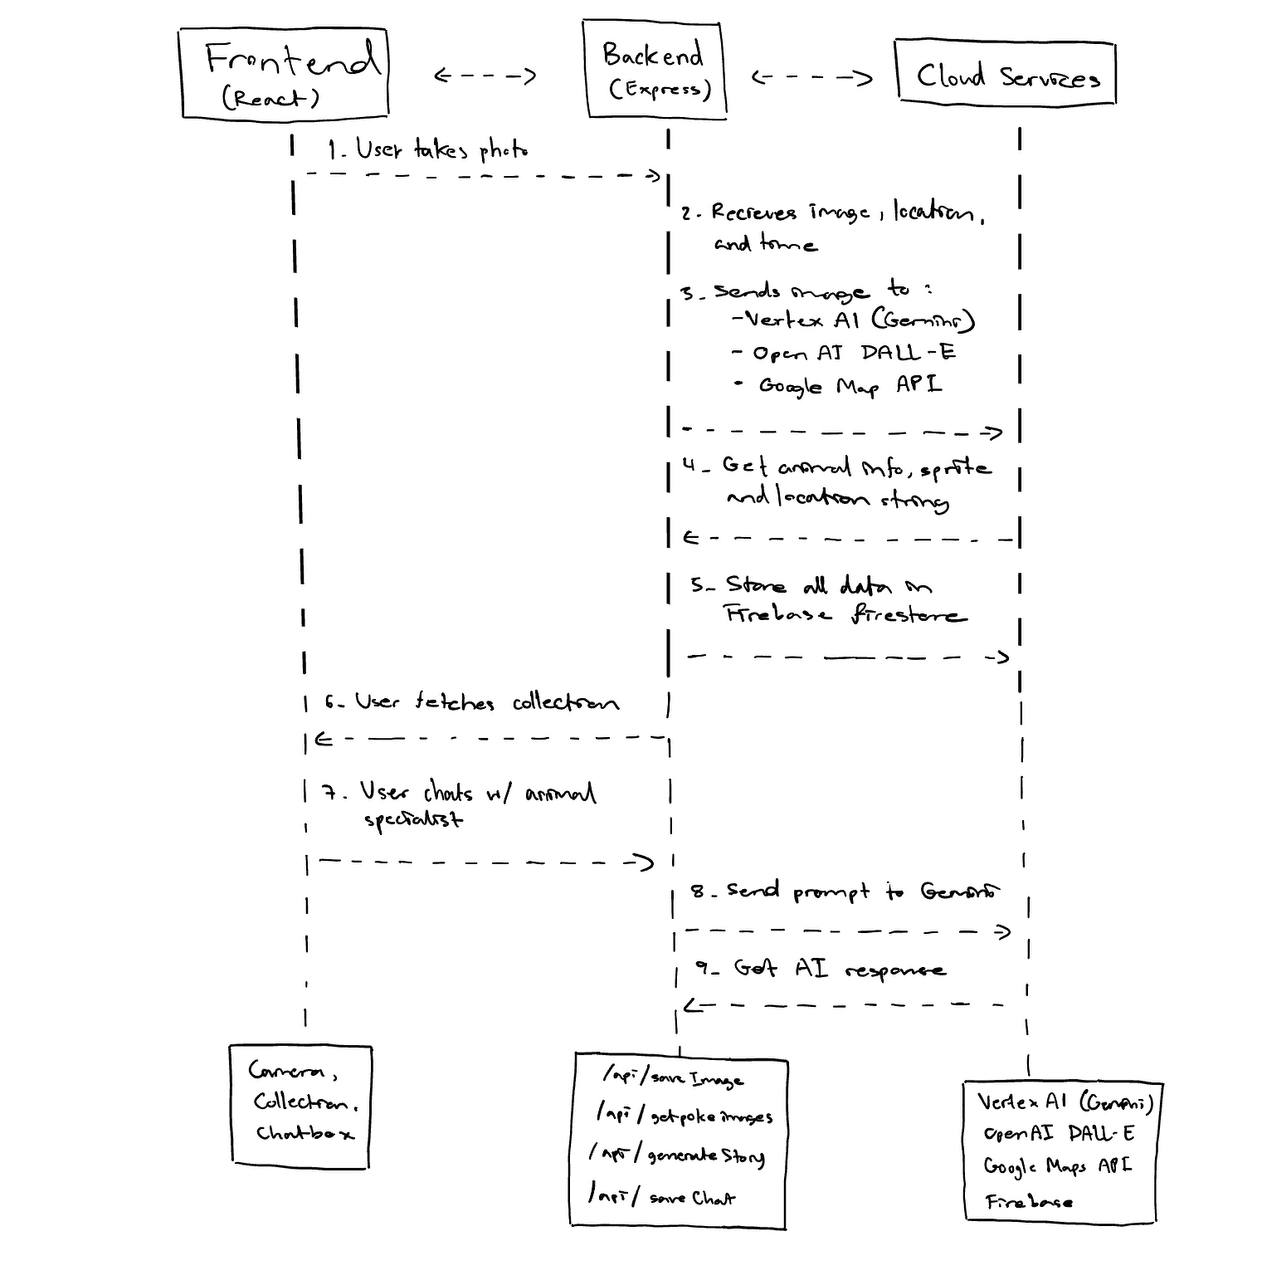 Frontend
(React)
Backend
(Express)
Cloud Services
1. User takes photo
2. Recieves image, location,
and time
3. Sends image to :
- Vertex AI (Gemini)
- Open AI DALL-E
- Google Map API
4. Get animal info, sprite
and location string
5. Store all data in
Firebase firestore
6. User fetches collection
7. User chats w/ animal
specialist
8. Send prompt to Gemini
9. Get AI response
Camera,
Collection,
Chatbox
/api/saveImage
/api/getpokeimages
/api/generateStory
/api/saveChat
Vertex AI (Gemini)
OpenAI DALL-E
Google Maps API
Firebase